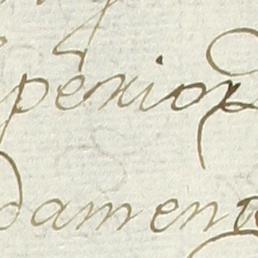 perior
dament